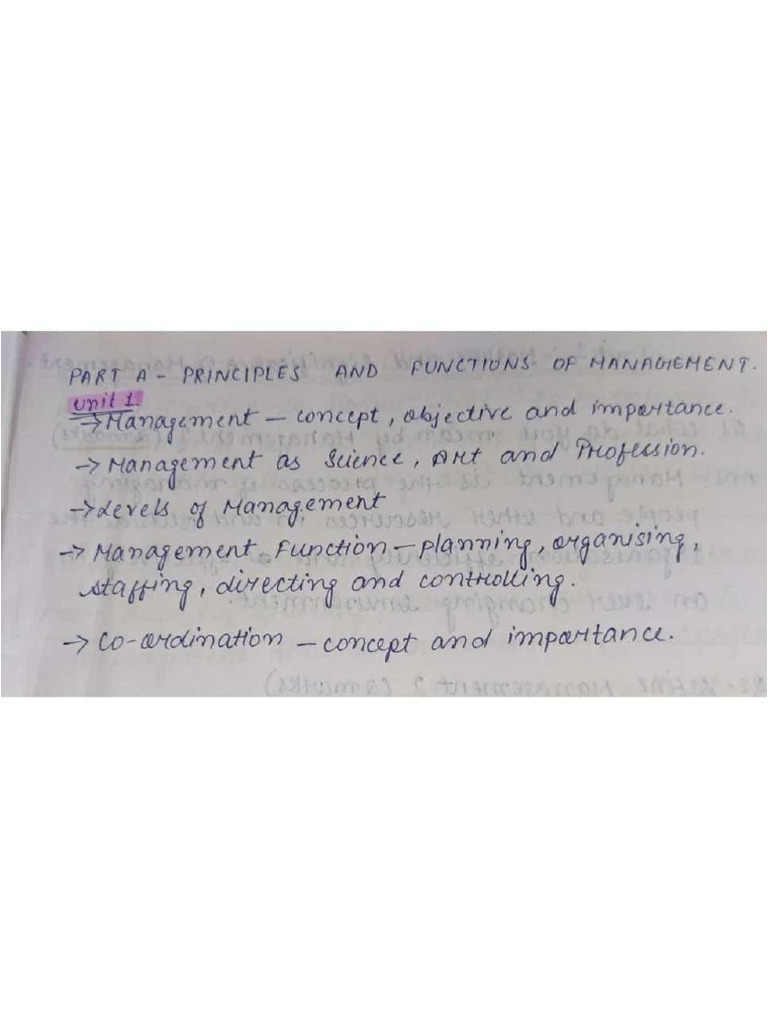 PART A - PRINCIPLES AND FUNCTIONS OF MANAGEMENT.
Unit 1.
→ Management - concept, objective and importance.
→ Management as Science, Art and Profession.
→ Levels of Management
→ Management Function - planning, organising,
staffing, directing and controlling.
→ Co-ordination - concept and importance.